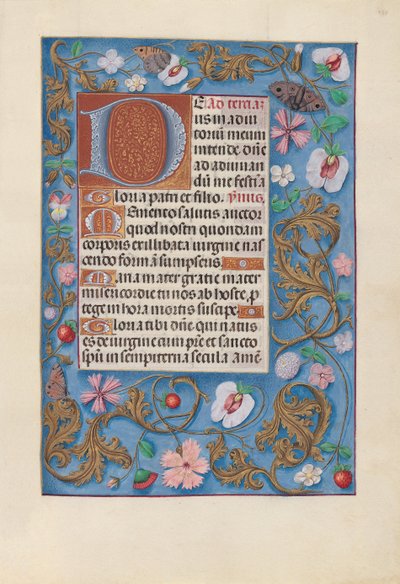 D E Ad tertiā
us in adiu
torium meum
intende dn̄e
ad adiuuan
dū me festīa
Gloria patri et filio. ymnus.
Memento salutis auctor
quod nostri quondam
corporis ex illibata uirgine nas
cendo formā sumpseris
Maria mater gratie mater
misericordie tu nos ab hoste, p
tege in hora mortis suscipe
Gloria tibi dn̄e qui natus
es de uirgine cum pr̄e et sancto
spū in sempiterna secula amē